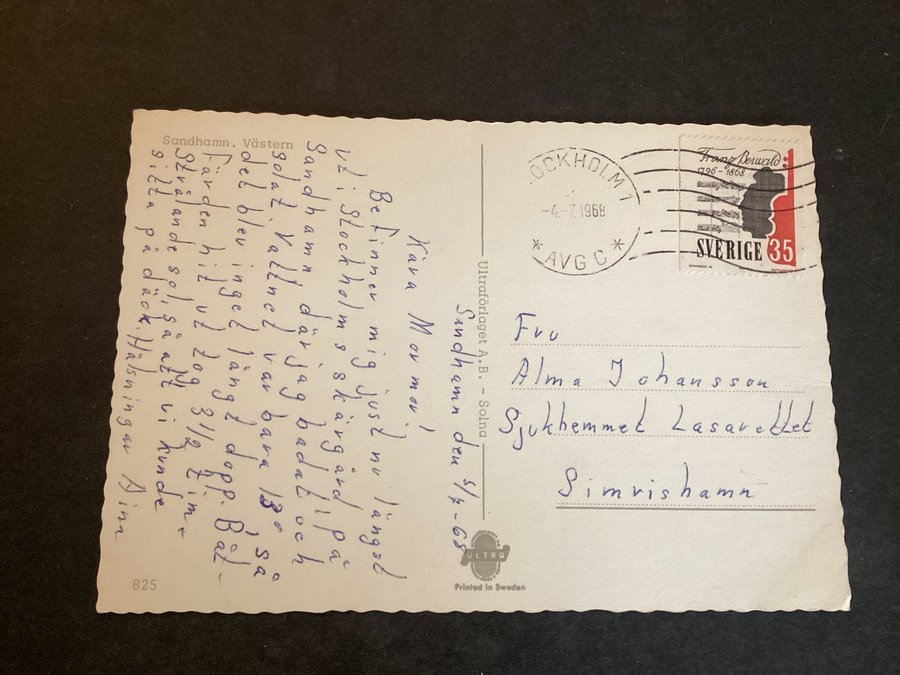 Sandhamn. Västern
Sandhamn den 3/7-68
Kära Mormor!
Befinner mig just nu längst
ut i Stockholms skärgård, på
Sandhamn där jag badat och
solat. Vattnet var bara 13°, så
det blev inget långt dopp. Båt-
färden hit ut tog 3 1/2 tim i
strålande sol, så att vi kunde
sitta på däck. Hälsningar
825
Ultraförlaget A.B. - Solna
ULTRA
Printed in Sweden
OCKHOLM 1
-4.-7.1968
* AVG C *
Franz Berwald
1796-1868
SVERIGE 35
Fru
Alma Johansson
Sjukhemmet Lasarettet
Simrishamn